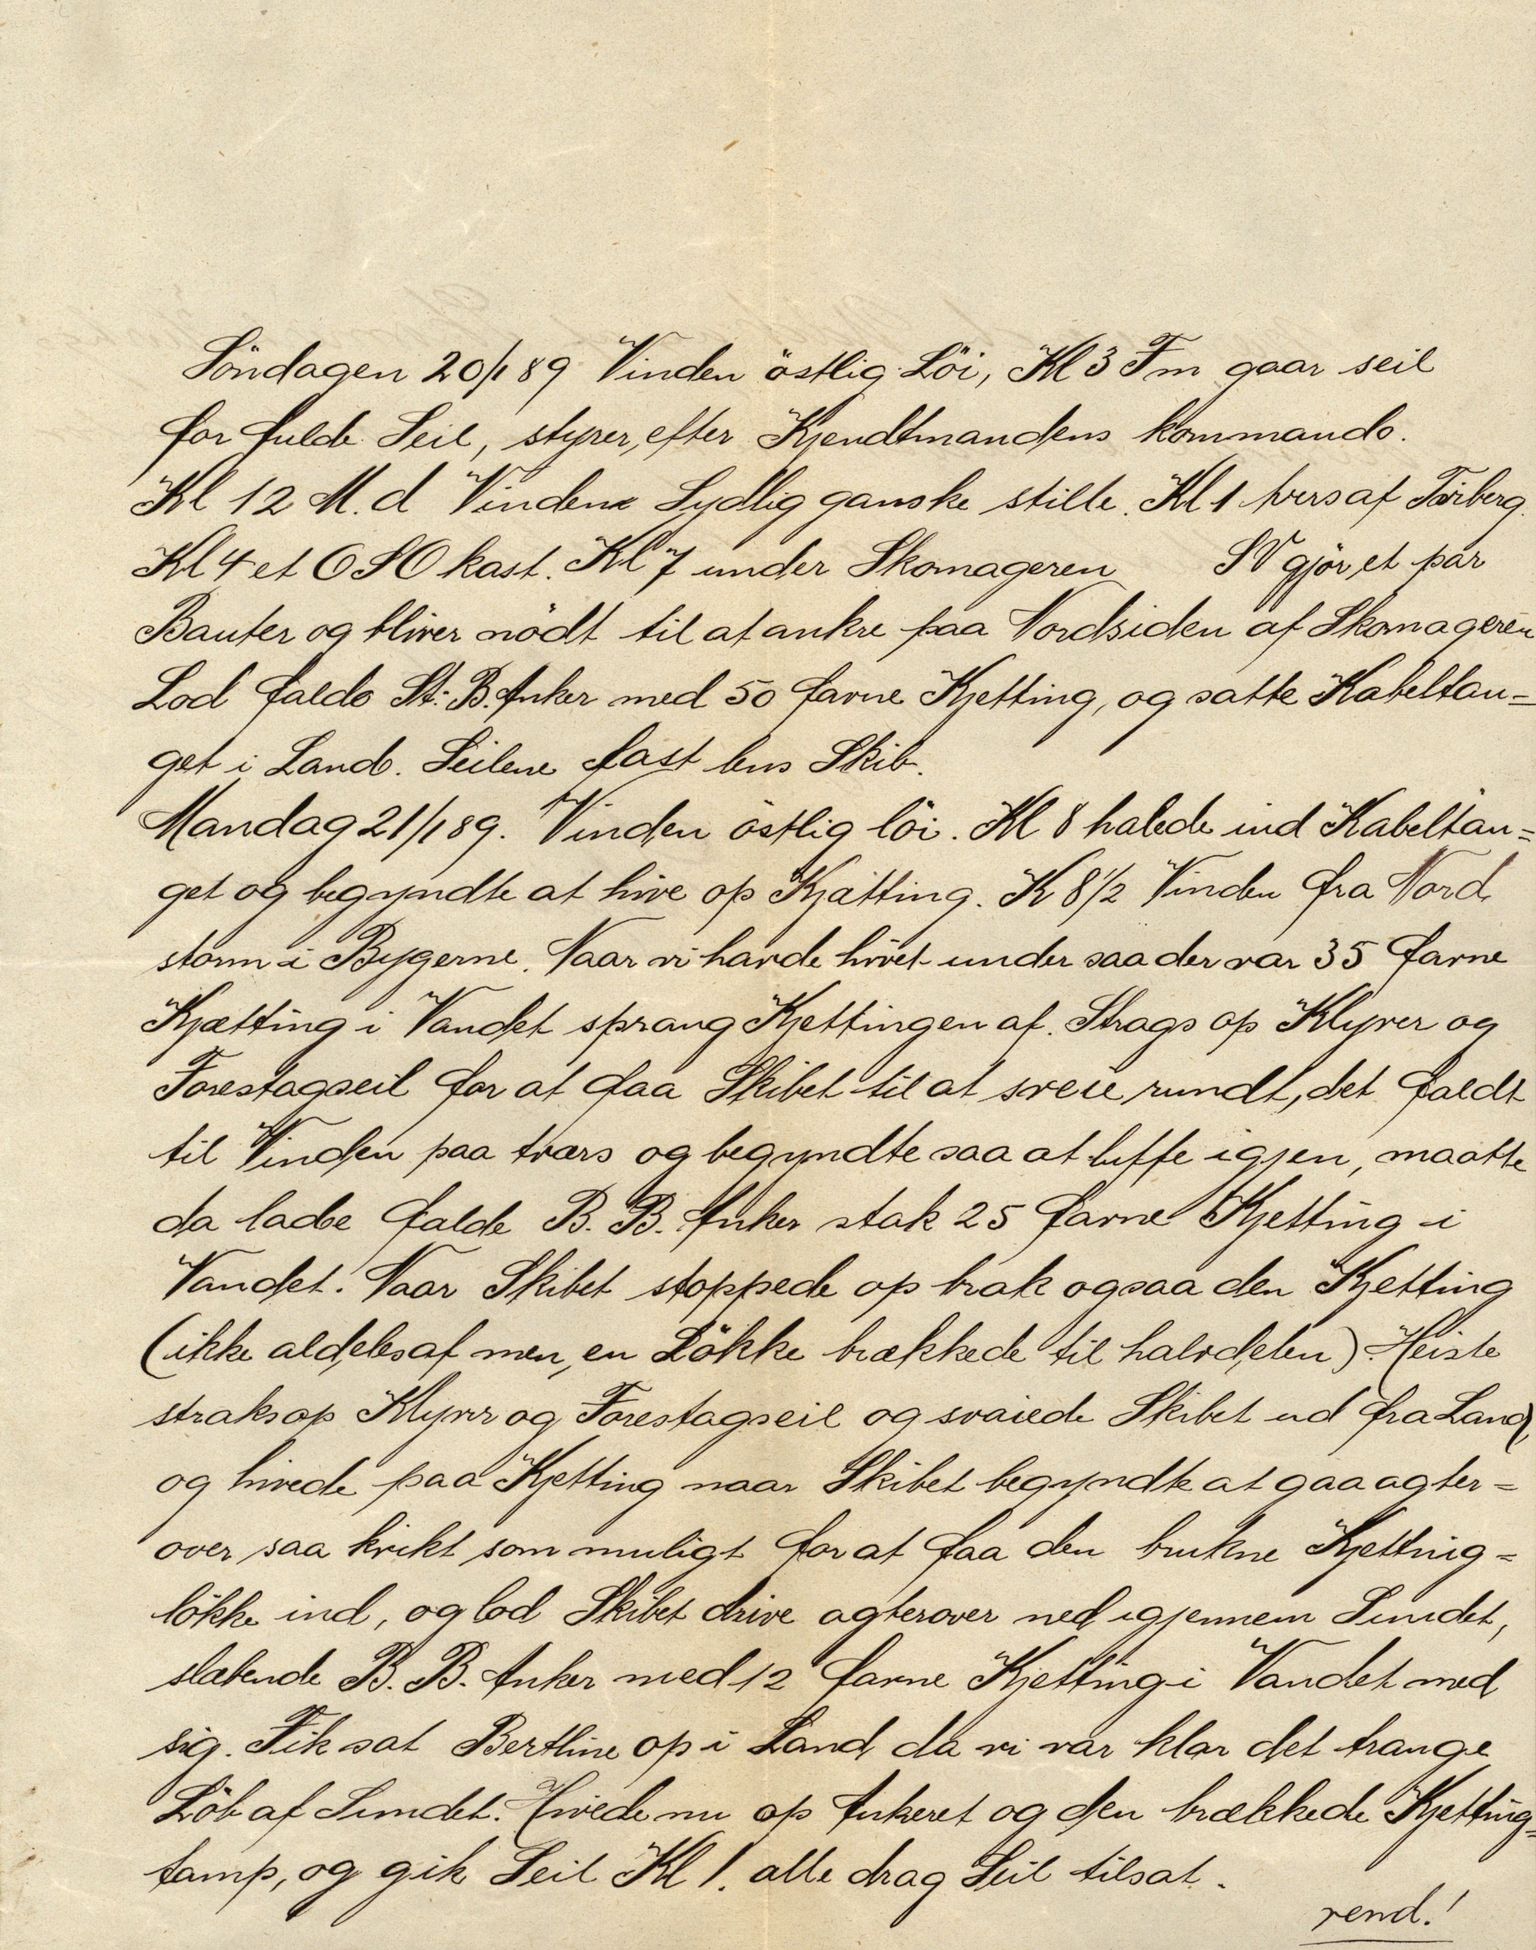 Söndagen 20/1 89 Vinden östlig Löi, Kl 3 Fm gaar seil
for fulde Seil, styrer, efter Kjendtmandens kommando.
Kl 12 M.d Vinden Sydlig ganske stille. Kl 1 tvers af Torberg.
Kl 4 et OSO kast. Kl 7 under Skomageren SV gjör, et par
Bauter og bliver nödt til at ankre paa Nordsiden af Skomageren
Lod falde St: B. Anker med 50 favne Kjetting, og satte Kabeltau=
get i Land. Seilene fast lens Skib.
Mandag 21/1 89. Vinden östlig löi. Kl 8 halede ind Kabeltau=
get og begyndte at hive op Kjätting. K 8 1/2 Vinden fra Nord
storm i Bygerne. Naar vi havde hivet under saa der var 35 favne
Kjætting i Vandet sprang Kjettingen af. Strags op Klyver og
Forestagseil for at faa Skibet til at sveie rundt, det faldt
til Vinden paa tværs og begyndte saa at luffe igjen, maatte
da lade falde B. B. Anker stak 25 favne Kjetting i
Vandet. Naar Skibet stoppede op brak ogsaa den Kjetting
(ikke aldeles af men, en Lökke brækkede til halvdelen). Heiste
straks op Klyver og Forestagseil og svaiede Skibet ud fra Land,
og hivede paa Kjetting naar Skibet begyndte at gaa agter=
over saa kvikt som muligt for at faa den brukne Kjetting=
lökke ind, og lod Skibet drive agterover ned igjennem Sundet,
slæbende B. B. Anker med 12 favne Kjetting i Vandet med
sig. Fik sat Bertline op i Land da vi var klar det trange
Löb af Sundet. Hivede nu op Ankeret og den brækkede Kjetting=
tamp, og gik Seil Kl 1. alle drag Seil tilsat.
vend.!